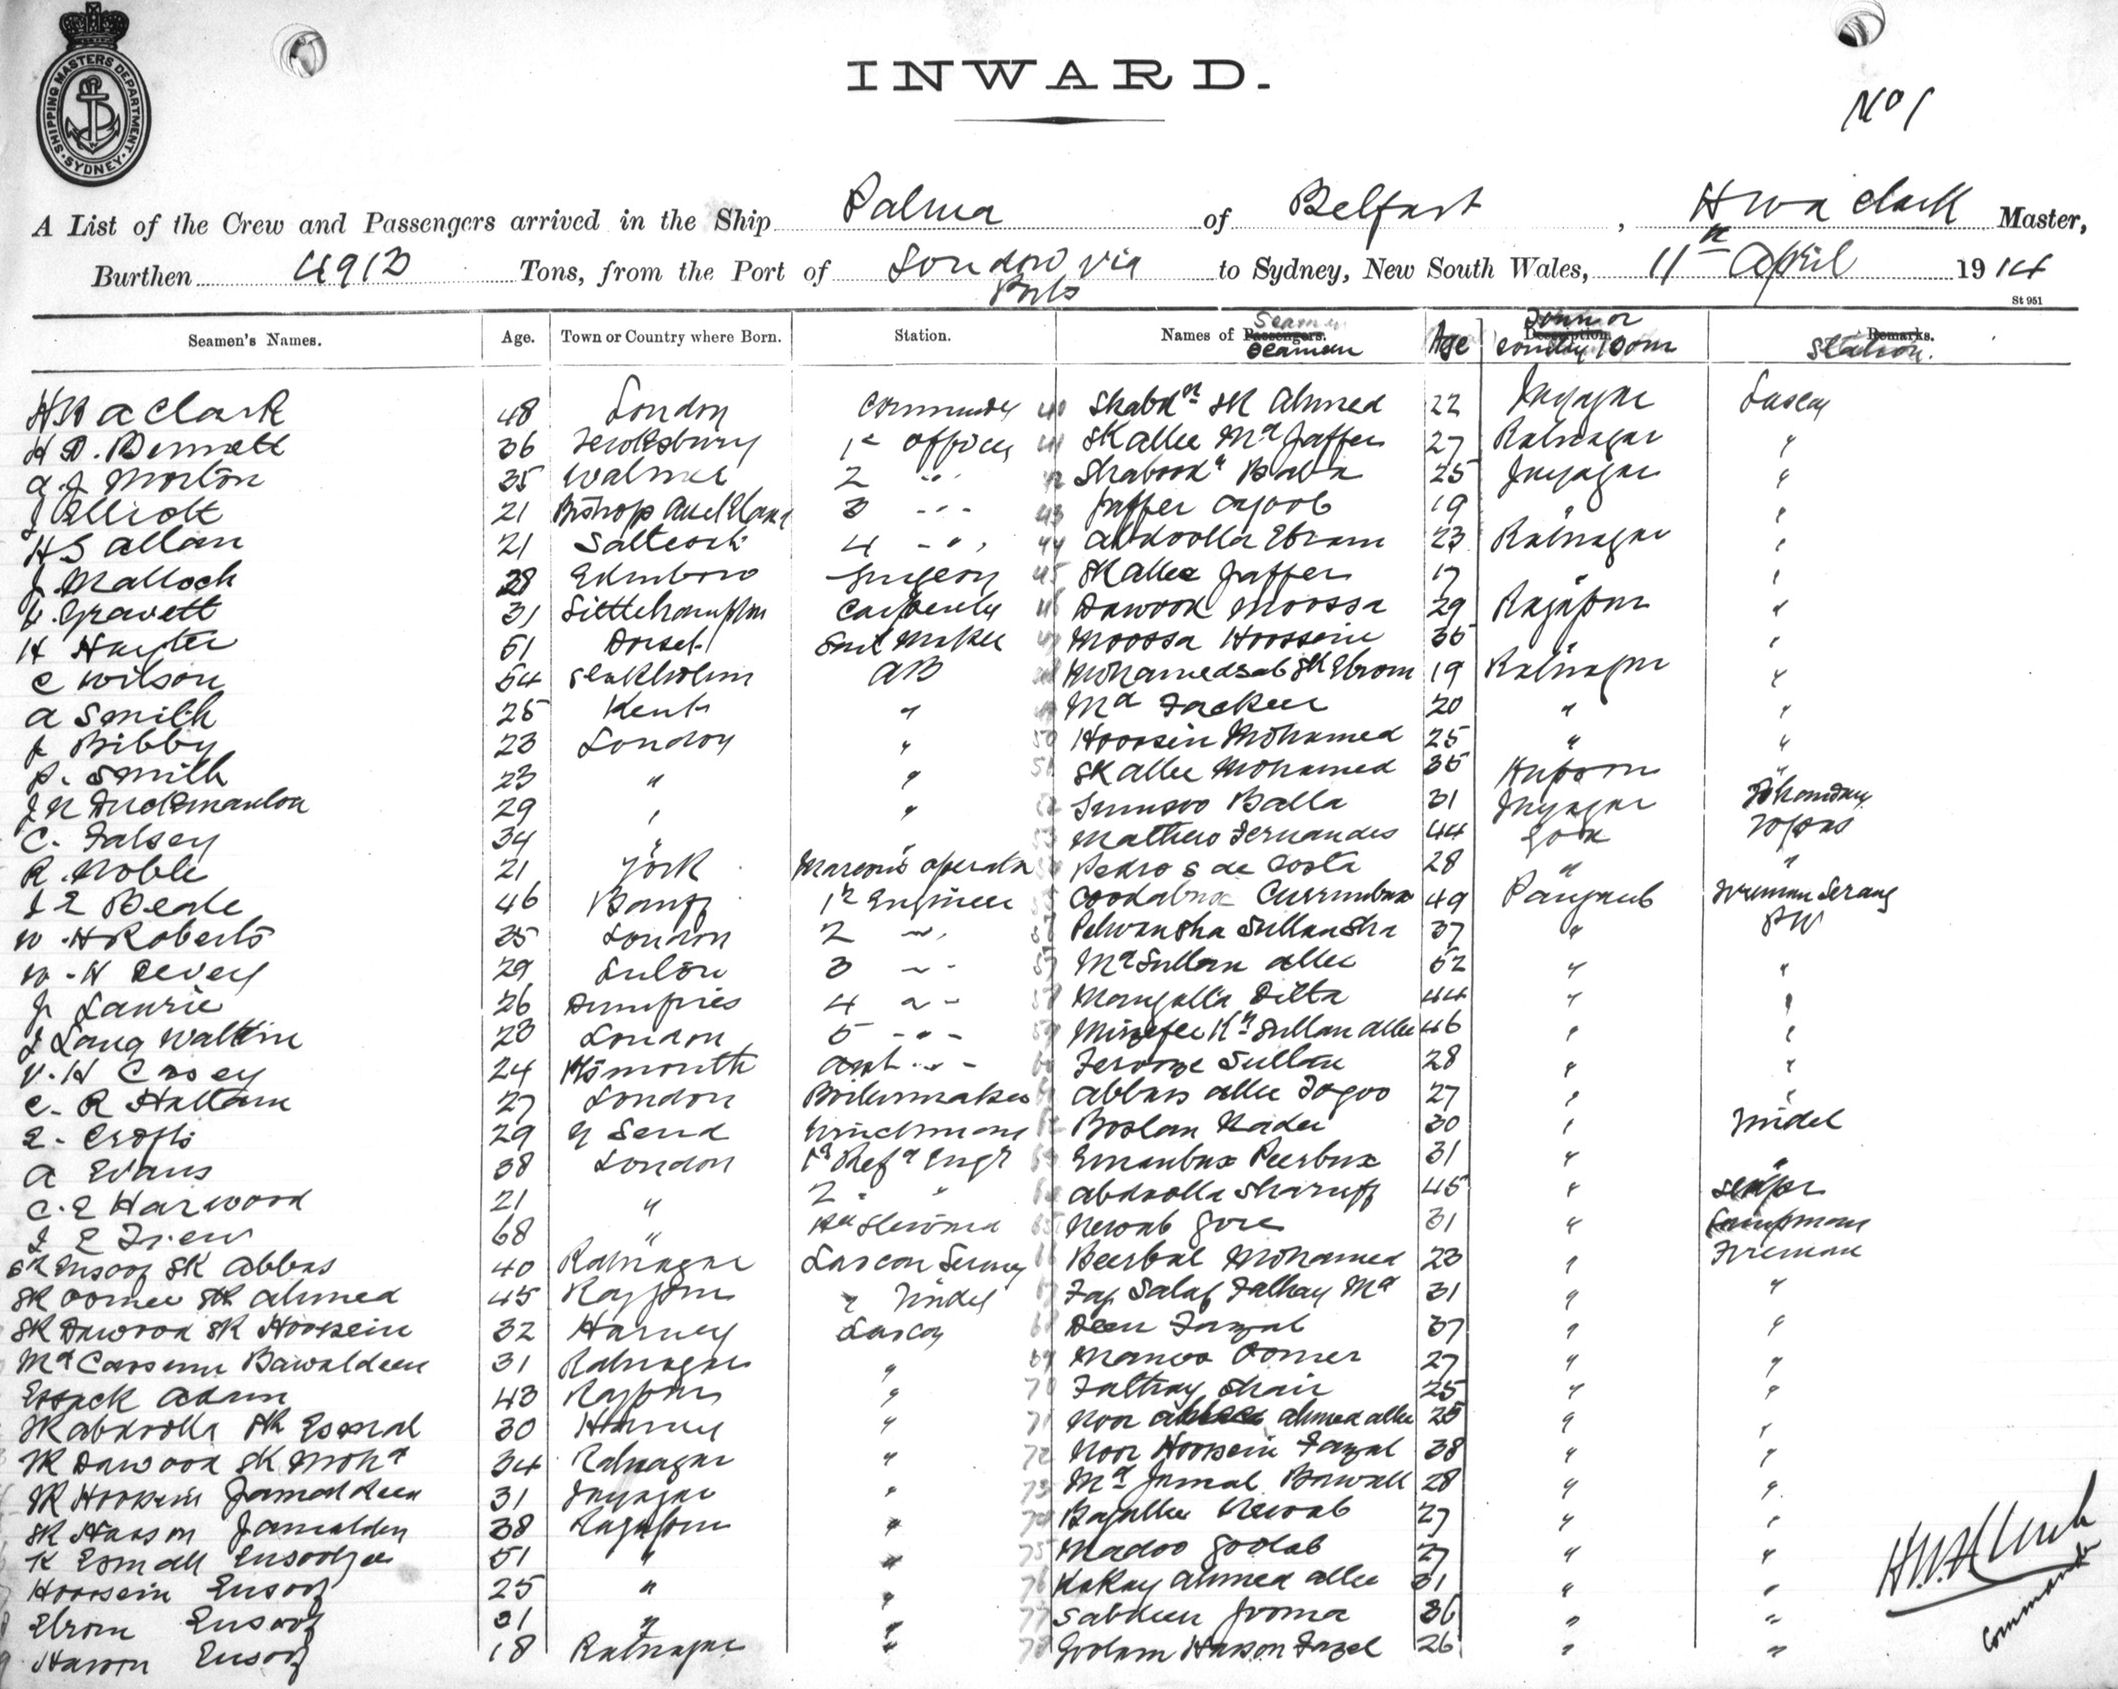 SHIPPING MASTERS DEPARTMENT. SYDNEY
INWARD.
No 1
A List of the Crew and Passengers arrived in the Ship Palma of Belfast, H W A Clark Master,
Burthen 4912 Tons, from the Port of London via Ports to Sydney, New South Wales, 11th April 1914
St 951
Seamen's Names. Age. Town or Country where Born. Station. Names of Passengers. Seamen Age Description. Town or Country born Remarks. Station.
H W A Clark 48 London Commander 40 SK Ahmed 22 Lascar
H D. Bennett 36 1st Officer 41 SK Allee Md Jaffer 27 Ratnagar "
A. J Morton 35 Walmer 2 " 42 Baba 25 "
J Elliott 21 Bishop Auckland 3 " 43 Jaffer Ayoob 19 "
H S Allan 21 4 " 44 Abdoolla Ebram 23 Ratnagar "
J. Malloch 28 Edinboro Surgeon 45 SK Allee Jaffer 17 "
Gravett 31 Littlehampton Carpenter 46 Dawood Moossa 29 Rajapur "
H Hayter 51 Dorset Sail Maker 47 Moossa Hoossein 35 "
C Wilson 54 Stockholm AB 48 Mohamedsab SK Ebrom 19 Ratnagar "
A Smith 25 Kent " 49 Md Fackeer 20 " "
J Bibby 23 London " 50 Hoossein Mohamed 25 " "
P. Smith 23 " " 51 SK Allee Mohamed 35 "
J N Duckmanton 29 " " 52 Balla 31 Bhandary
C. Falsey 34 " " 53 Mathew Fernandes 44 Goa Topas
R. Noble 21 York Marconi Operator 54 Pedro S de Costa 28 " "
J E Beale 46 Banff 1st Engineer 55 Coodabux Currimbux 49 Punjaub Fireman Serang
W. H Roberts 35 London 2 " 56 Pehvansha Sullansha 37 "
W. H Devey 29 Luton 3 " 57 Md Sultan Allee 52 " "
J. Laurie 26 Dumfries 4 " 58 Mangulla Ditta 44 " "
J Lang Waltkin 23 London 5 " 59 Kn Sultan Allee 46 " "
V. H Casey 24 Ptsmouth " 60 Feroze Sultan 28 " "
C. R Hallam 27 London Boilermaker 61 Abbas Allee Jogoo 27 " "
E. Crofts 29 Winchman 62 Boslan Kader 30 " Tindel
A Evans 38 London 1st Refr Engr 63 Emambux Peerbux 31 " "
C. E Harwood 21 " 2 " 64 Abdoolla Sharuff 45 "
J E Trew 68 " 65 Newab Gore 31 " Lampman
SK Ensoof SK Abbas 40 Ratnagar Lascar Serang 66 Beerbal Mohamed 23 " Fireman
SK Oomer SK Ahmed 45 " Tindel 67 Md 31 " "
SK Dawood SK Hoossein 32 Harney Lascar 68 Deen Fazal 37 " "
Md Cassum Bawaldeen 31 Ratnagar " 69 Oomer 27 " "
Essack Adam 43 " 70 Shair 25 " "
SK Abdoolla SK Esmal 30 Harney " 71 Noor Ahmed Allee 25 " "
SK Dawood SK Mohd 34 Ratnagar " 72 Noor Hoossein Fazal 38 " "
SK Hoossein Jamaldeen 31 " 73 Md Jumal 28 " "
SK Hasson Jamaldeen 38 Rajapur " 74 Newab 27 " "
K Esmall Ensoofjee 51 " " 75 Madoo Goolab 27 " "
Hoossein Ensoof 25 " " 76 Ahmed Allee 31 " "
Ebrom Ensoof 31 " " 77 Sabdeen Jooma 36 " "
Haroon Ensoof 18 Ratnagar " 78 Goolam Hasson Fazel 26 " "
H.W.A Clark
Commander